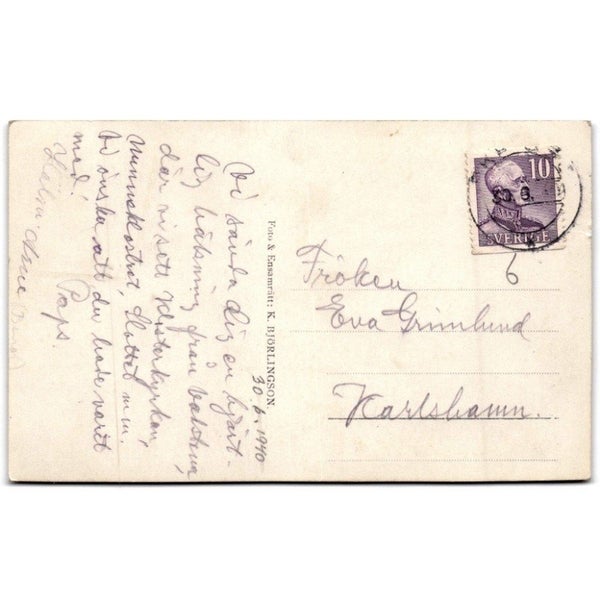 30.6.1940
Vi sända dig en hjärt-
lig hälsning från Vadstena
där vi sett Klosterkyrkan,
Nunneklostret, Slottet m.m.
Vi önska att du hade varit
med.
Paps.
Foto & Ensamrätt: K. BJÖRLINGSON
10
SVERIGE
30.6.
6
Fröken
Eva Grimlund
Karlshamn.